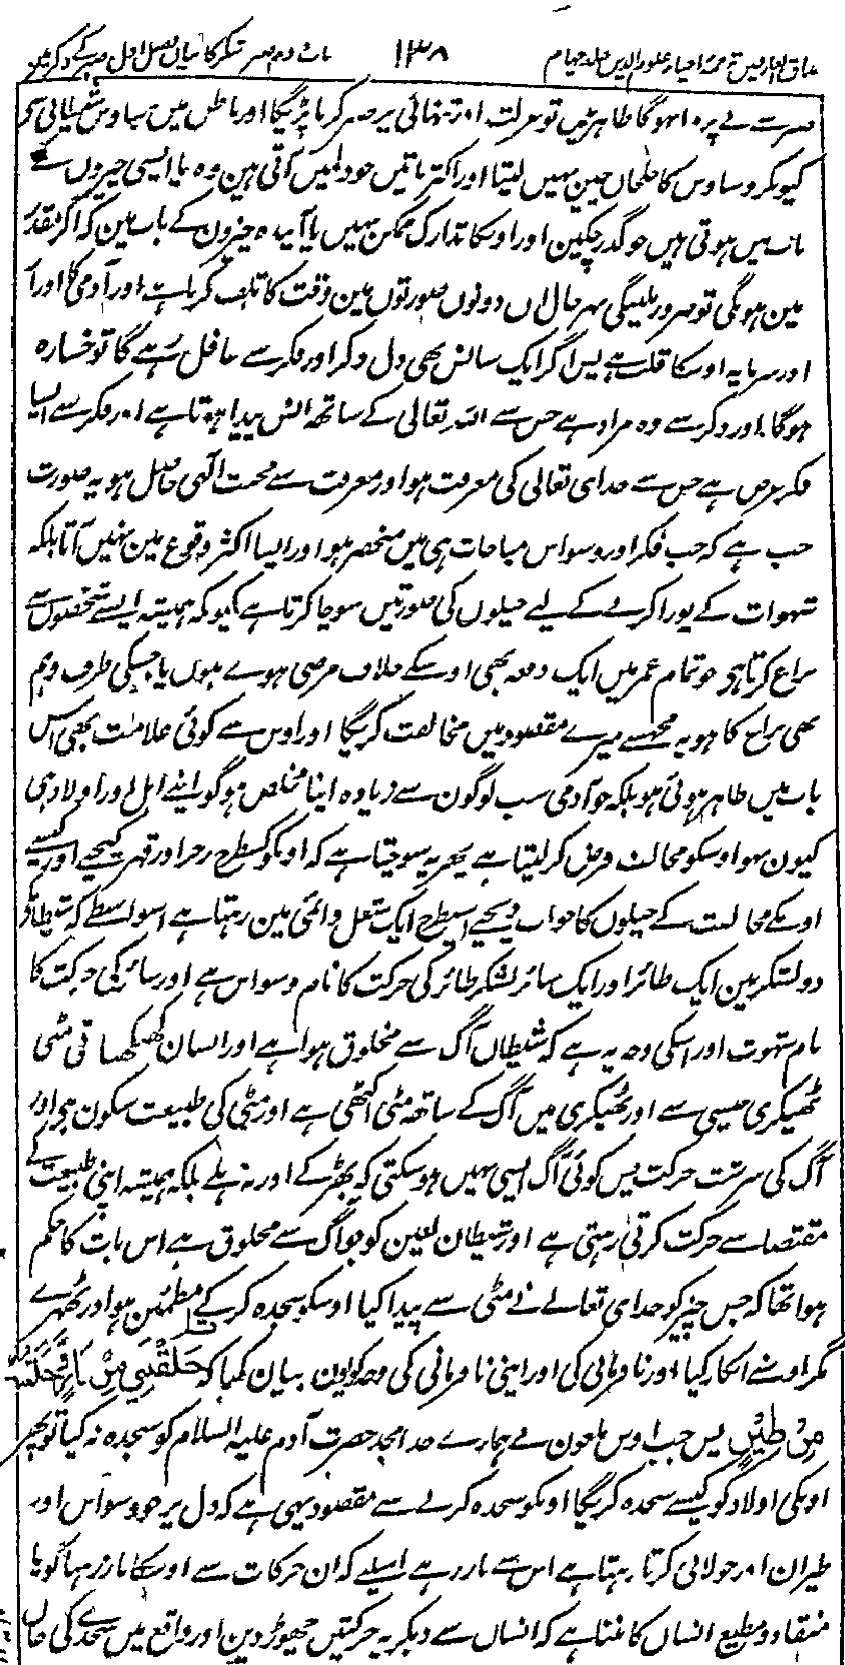 مذاق العارفین ترجمہ احیاء علوم الدین جلد چہارم ۱۳۸ باب دوم صبر شکر کا بیان فصل اول صبر کے ذکر میں
صبر سے بے پروا ہوگا ظاہر میں تو عزلت اور تنہائی پر صبر کرنا پڑیگا اور باطن میں وساوس شیطانی سے
کیونکر وساوس کا خلجان چین نہیں لیتا اور اکثر باتیں جو دلمیں آتی ہین وہ یا ایسی چیزوں کے
باب میں ہوتی ہیں جو گذر چکین اور اوسکا تدارک ممکن نہیں یا آیندہ چیزون کے باب مین کہ اگر تقدیر
مین ہوگی تو ضرور ملیگی بہر حال ان دونوں صورتوں مین وقت کا تلف کرنا ہے اور آدمی کا اوزار
اور سرمایہ اوسکا قلب ہے پس اگر ایک سانس بھی دل ذکر اور فکر سے غافل رہے گا تو خسارہ
ہوگا اور ذکر سے وہ مراد ہے جس سے اللہ تعالی کے ساتھ انس پیدا ہوتا ہے اور فکر سے ایسا
فکر غرض ہے جس سے خدای تعالی کی معرفت ہو اور معرفت سے محبت الٰہی حاصل ہو یہ صورت
جب ہے کہ جب فکر اور وسواس مباحات ہی میں منحصر ہو اور ایسا اکثر وقوع مین نہیں آتا بلکہ
شہوات کے پورا کرنے کے لیے حیلوں کی صورتیں سوچا کرتا ہے کیونکہ ہمیشہ ایسے شخصوں سے
نزاع کرتا ہی جو تمام عمر میں ایک دفعہ بھی اوسکے خلاف مرضی ہوے ہوں یا جسکی طرف وہم
بھی نزاع کا ہو یہ مجھسے میرے مقصود میں مخالفت کریگا اور اوس سے کوئی علامت بھی اس
باب میں ظاہر ہوئی ہو بلکہ جو آدمی سب لوگون سے زیادہ اپنا مخلص ہو گو اپنے اہل اور اولاد ہی
کیون نہو اوسکو مخالف فرض کر لیتا ہے پھر یہ سوچتا ہے کہ اونکو کسطرح زجر اور قہر کیجیے اور کیسے
اونکے مخالفت کے حیلوں کا جواب دیجیے اسیطرح ایک شغل دائمی مین رہتا ہے اسواسطے کہ شیطانکے
دو لشکر ہین ایک طائر اور ایک سائر لشکر طائر کی حرکت کا نام وسواس ہے اور سائر کی حرکت کا
نام شہوت اور اسکی وجہ یہ ہے کہ شیطان آگ سے مخلوق ہوا ہے اور انسان کھنکھناتی مٹی
ٹھیکری جیسی سے اور ٹھیکری میں آگ کے ساتھ مٹی اکٹھی ہے اور مٹی کی طبیعت سکون ہی اور
آگ کی سرشت حرکت پس کوئی آگ ایسی نہیں ہوسکتی کہ بھڑکے اور نہ ہلے بلکہ ہمیشہ اپنی طبیعت کے
مقتضا سے حرکت کرتی رہتی ہے اور شیطان لعین کو جو آگ سے مخلوق ہے اس بات کا حکم
ہوا تھا کہ جس چیز کو خدای تعالے نے مٹی سے پیدا کیا اوسکو سجدہ کر کے مطمئن ہو اور ٹھہرے
مگر اوسنے انکار کیا اور نافرمانی کی اور اپنی نافرمانی کی وجہ کو یون بیان کیا کہ خَلَقْتَنِي مِنْ نَارٍ وَّخَلَقْتَهُ
مِنْ طِيْنٍ پس جب اوس ملعون نے ہمارے جد امجد حضرت آدم علیہ السلام کو سجدہ نہ کیا تو پھر
اونکی اولاد کو کیسے سجدہ کریگا اونکو سجدہ کرنے سے مقصود یہی ہے کہ دل پر جو وسواس اور
طیران اور جولانی کرتا رہتا ہے اس سے باز رہے اسلیے کہ ان حرکات سے اوسکا باز رہنا گویا
منقاد و مطیع انسان کا بننا ہے کہ انسان سے دبکر یہ حرکتیں چھوڑ دین اور واقع میں سجدے کی جان